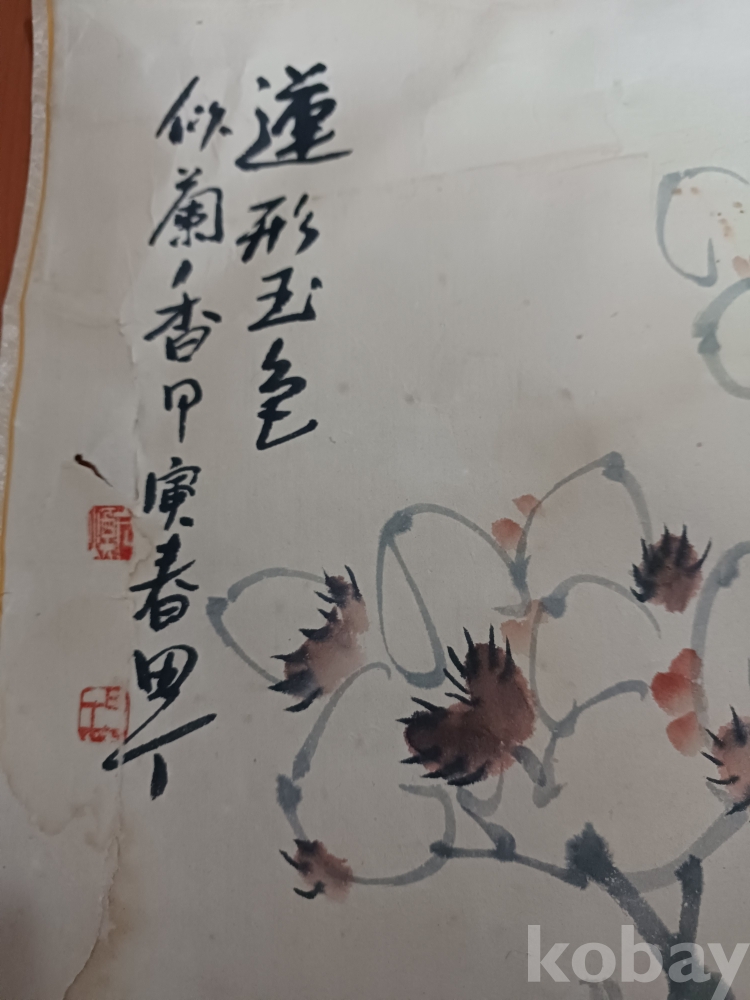 蓮形玉色
似蘭香甲寅春
kobay